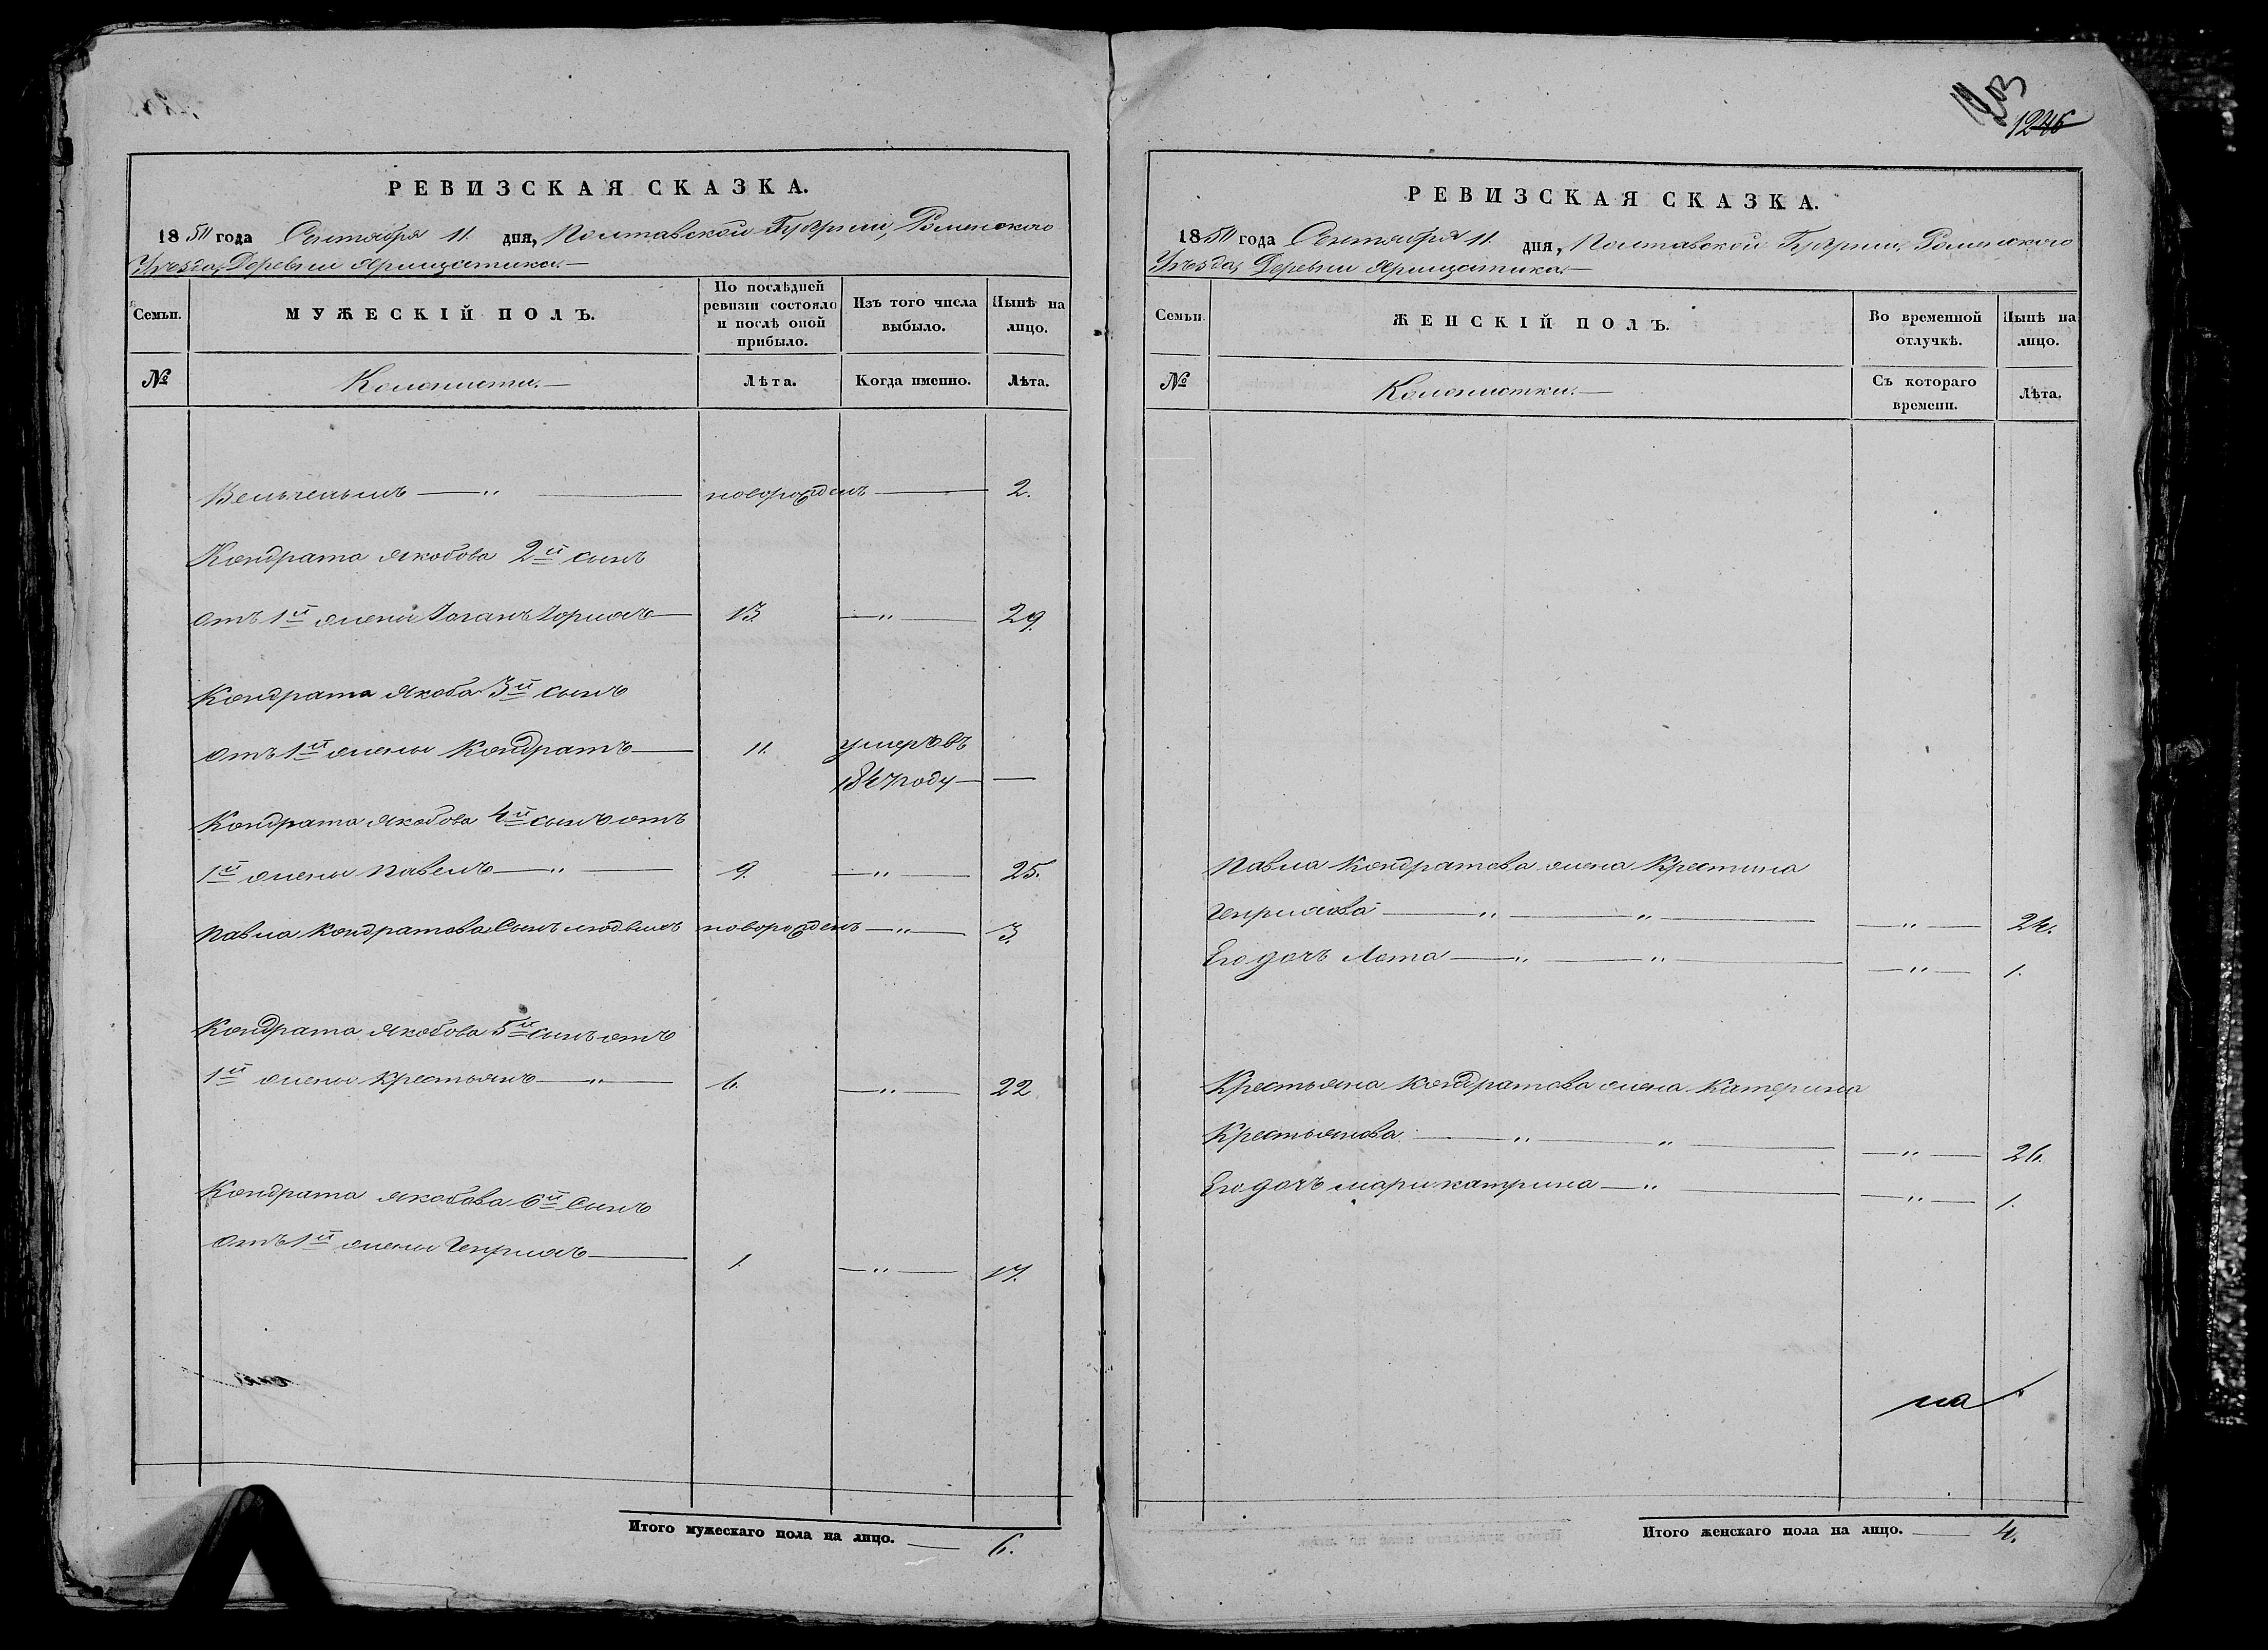 РЕВИЗСКАЯ СКАЗКА.
1850 года Сентября 11. дня, Полтавской Губернии, Роменского
Уезда, Деревни
Семьи.
МУЖЕСКІЙ ПОЛЪ.
По послѣдней ревизіи состояло и послѣ оной прибыло.
Изъ того числа выбыло.
Нынѣ на лицо.
№
Колонисти.
Лѣта.
Когда именно.
Лѣта.
Вельгельмъ — „ — новорожденъ — 2.
Кондрата Якобова 2й сынъ
отъ 1й жены Іоганъ Іорихъ — 13. — „ — 29.
Кондрата Якоба 3й сынъ
отъ 1й жены Кондратъ — 11. умеръ въ
1847 году — —
Кондрата Якобова 4й сынъ отъ
1й жены Павелъ — „ — 9. — „ — 25.
Павла Кондратова Сынъ людвихъ новорожденъ — „ — 3.
Кондрата Якобова 5й сынъ отъ
1й жены Крестьянъ — „ — 6. — „ — 22
Кондрата Якобова 6й Сынъ
отъ 1й жены Генрихъ — 1. — „ — 17.
Итого мужескаго пола на лицо. — 6.
1246
РЕВИЗСКАЯ СКАЗКА.
1850 года Сентября 11. дня, Полтавской Губернии, Роменского
Уезда, Деревни
Семьи.
ЖЕНСКІЙ ПОЛЪ.
Во временной отлучкѣ.
Нынѣ на лицо.
№
Колонистки.
Съ котораго времени.
Лѣта.
Павла Кондратова жена Крестина
Генрихова — „ — „ — „ — 24.
Его дочь Лота — „ — „ — „ — 1.
Крестьяна Кондратова жена Катерина
Крестьянова — „ — „ — „ — 26.
Его дочь мари катрина — „ — „ — 1.
на
Итого женскаго пола на лицо. — 4.